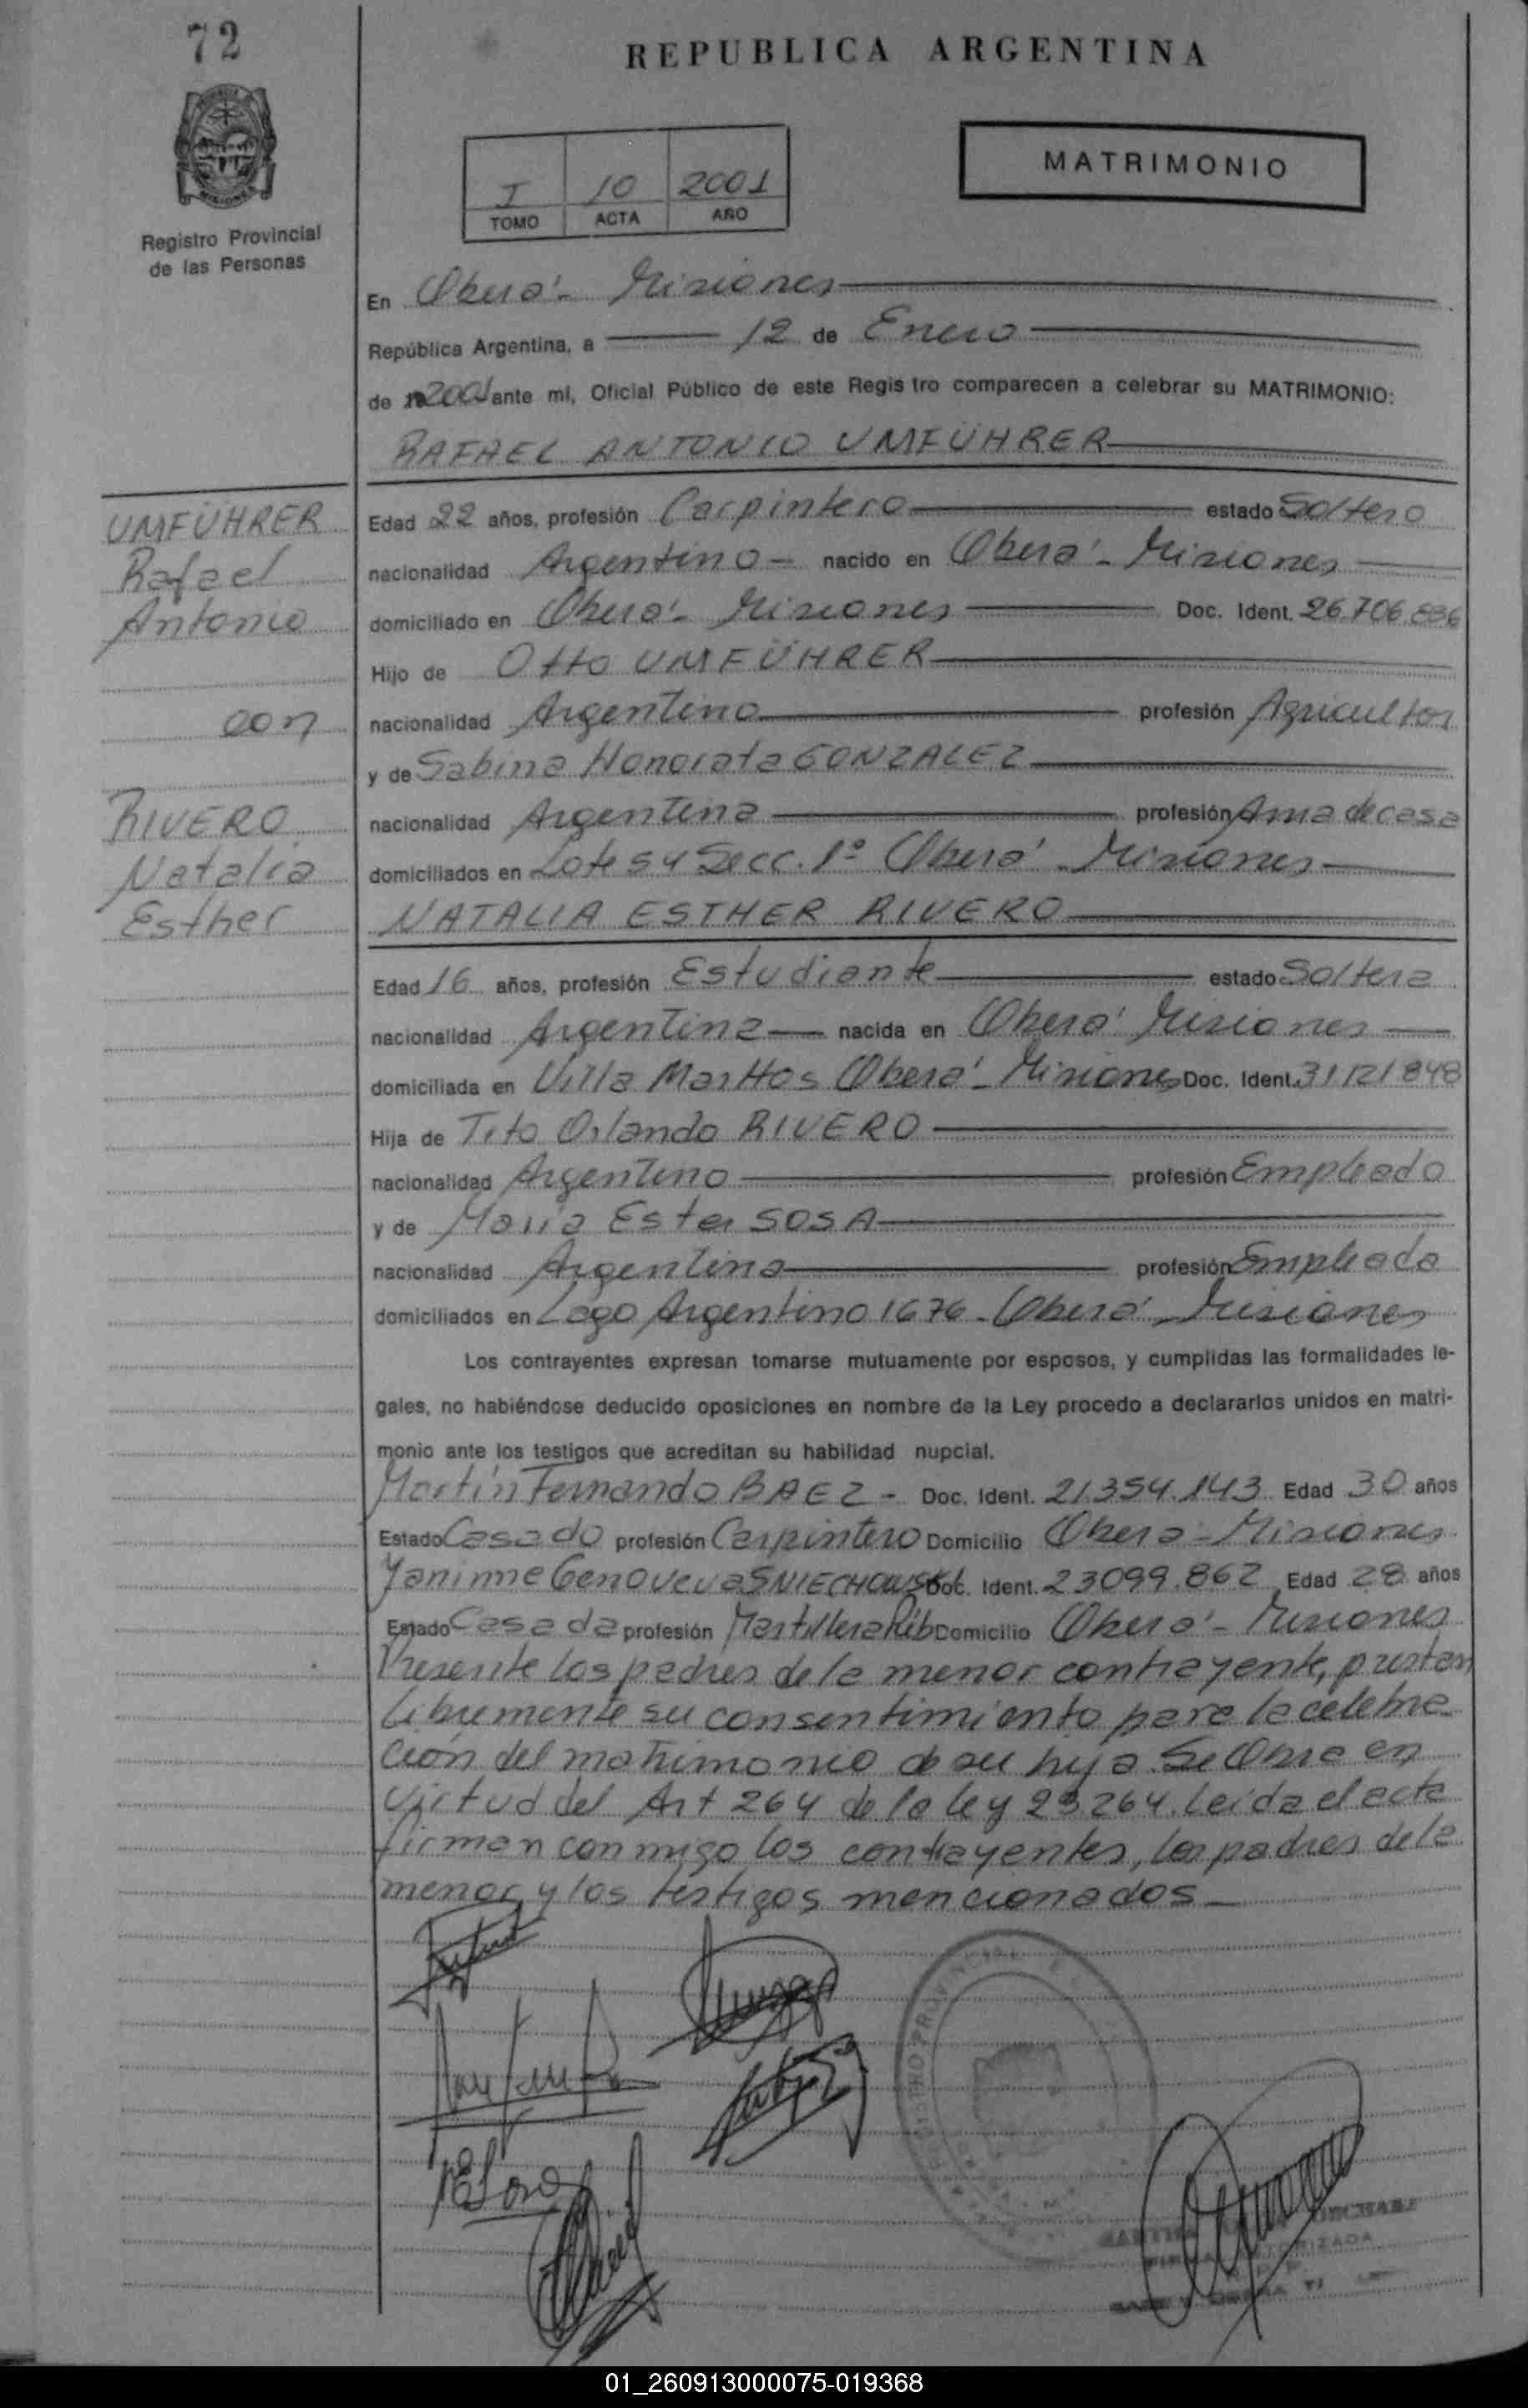 72
REPUBLICA ARGENTINA
I 10 2001
TOMO ACTA AÑO
MATRIMONIO
Registro Provincial
de las Personas
En Oberá - Misiones
República Argentina, a 12 de Enero
de 2001 ante mí, Oficial Público de este Registro comparecen a celebrar su MATRIMONIO:
RAFAEL ANTONIO UMFÜHRER
UMFÜHRER
Rafael
Antonio
con
RIVERO
Natalia
Esther
Edad 22 años, profesión Carpintero estado Soltero
nacionalidad Argentino - nacido en Oberá - Misiones
domiciliado en Oberá - Misiones Doc. Ident. 26.706.836
Hijo de Otto UMFÜHRER
nacionalidad Argentino profesión Agricultor
y de Sabina Honorata GONZALEZ
nacionalidad Argentina profesión Ama de casa
domiciliados en Lote 54 Secc. 1º Oberá - Misiones
NATALIA ESTHER RIVERO
Edad 16 años, profesión Estudiante estado Soltera
nacionalidad Argentina nacida en Oberá Misiones
domiciliada en Villa Marttos Oberá - Misiones Doc. Ident. 31.121.848
Hija de Tito Orlando RIVERO
nacionalidad Argentino profesión Empleado
y de María Ester SOSA
nacionalidad Argentina profesión Empleada
domiciliados en Lago Argentino 1676 - Oberá - Misiones
Los contrayentes expresan tomarse mutuamente por esposos, y cumplidas las formalidades le-
gales, no habiéndose deducido oposiciones en nombre de la Ley procedo a declararlos unidos en matri-
monio ante los testigos que acreditan su habilidad nupcial.
Martín Fernando BAEZ - Doc. Ident. 21.354.143 Edad 30 años
Estado Casado profesión Carpintero Domicilio Oberá - Misiones
Janinne Genoveva SNIECHOWSKI Doc. Ident. 23099.862 Edad 28 años
Estado Casada profesión Martillera Púb Domicilio Oberá - Misiones
Presente los padres de la menor contrayente, prestan
libremente su consentimiento para la celebra-
ción del matrimonio de su hija. Se Obra en
virtud del Art 264 de la ley 23.264. Leída el acta
firman conmigo los contrayentes, los padres de la
menor y los testigos mencionados -
REGISTRO PROVINCIAL
01_260913000075-019368